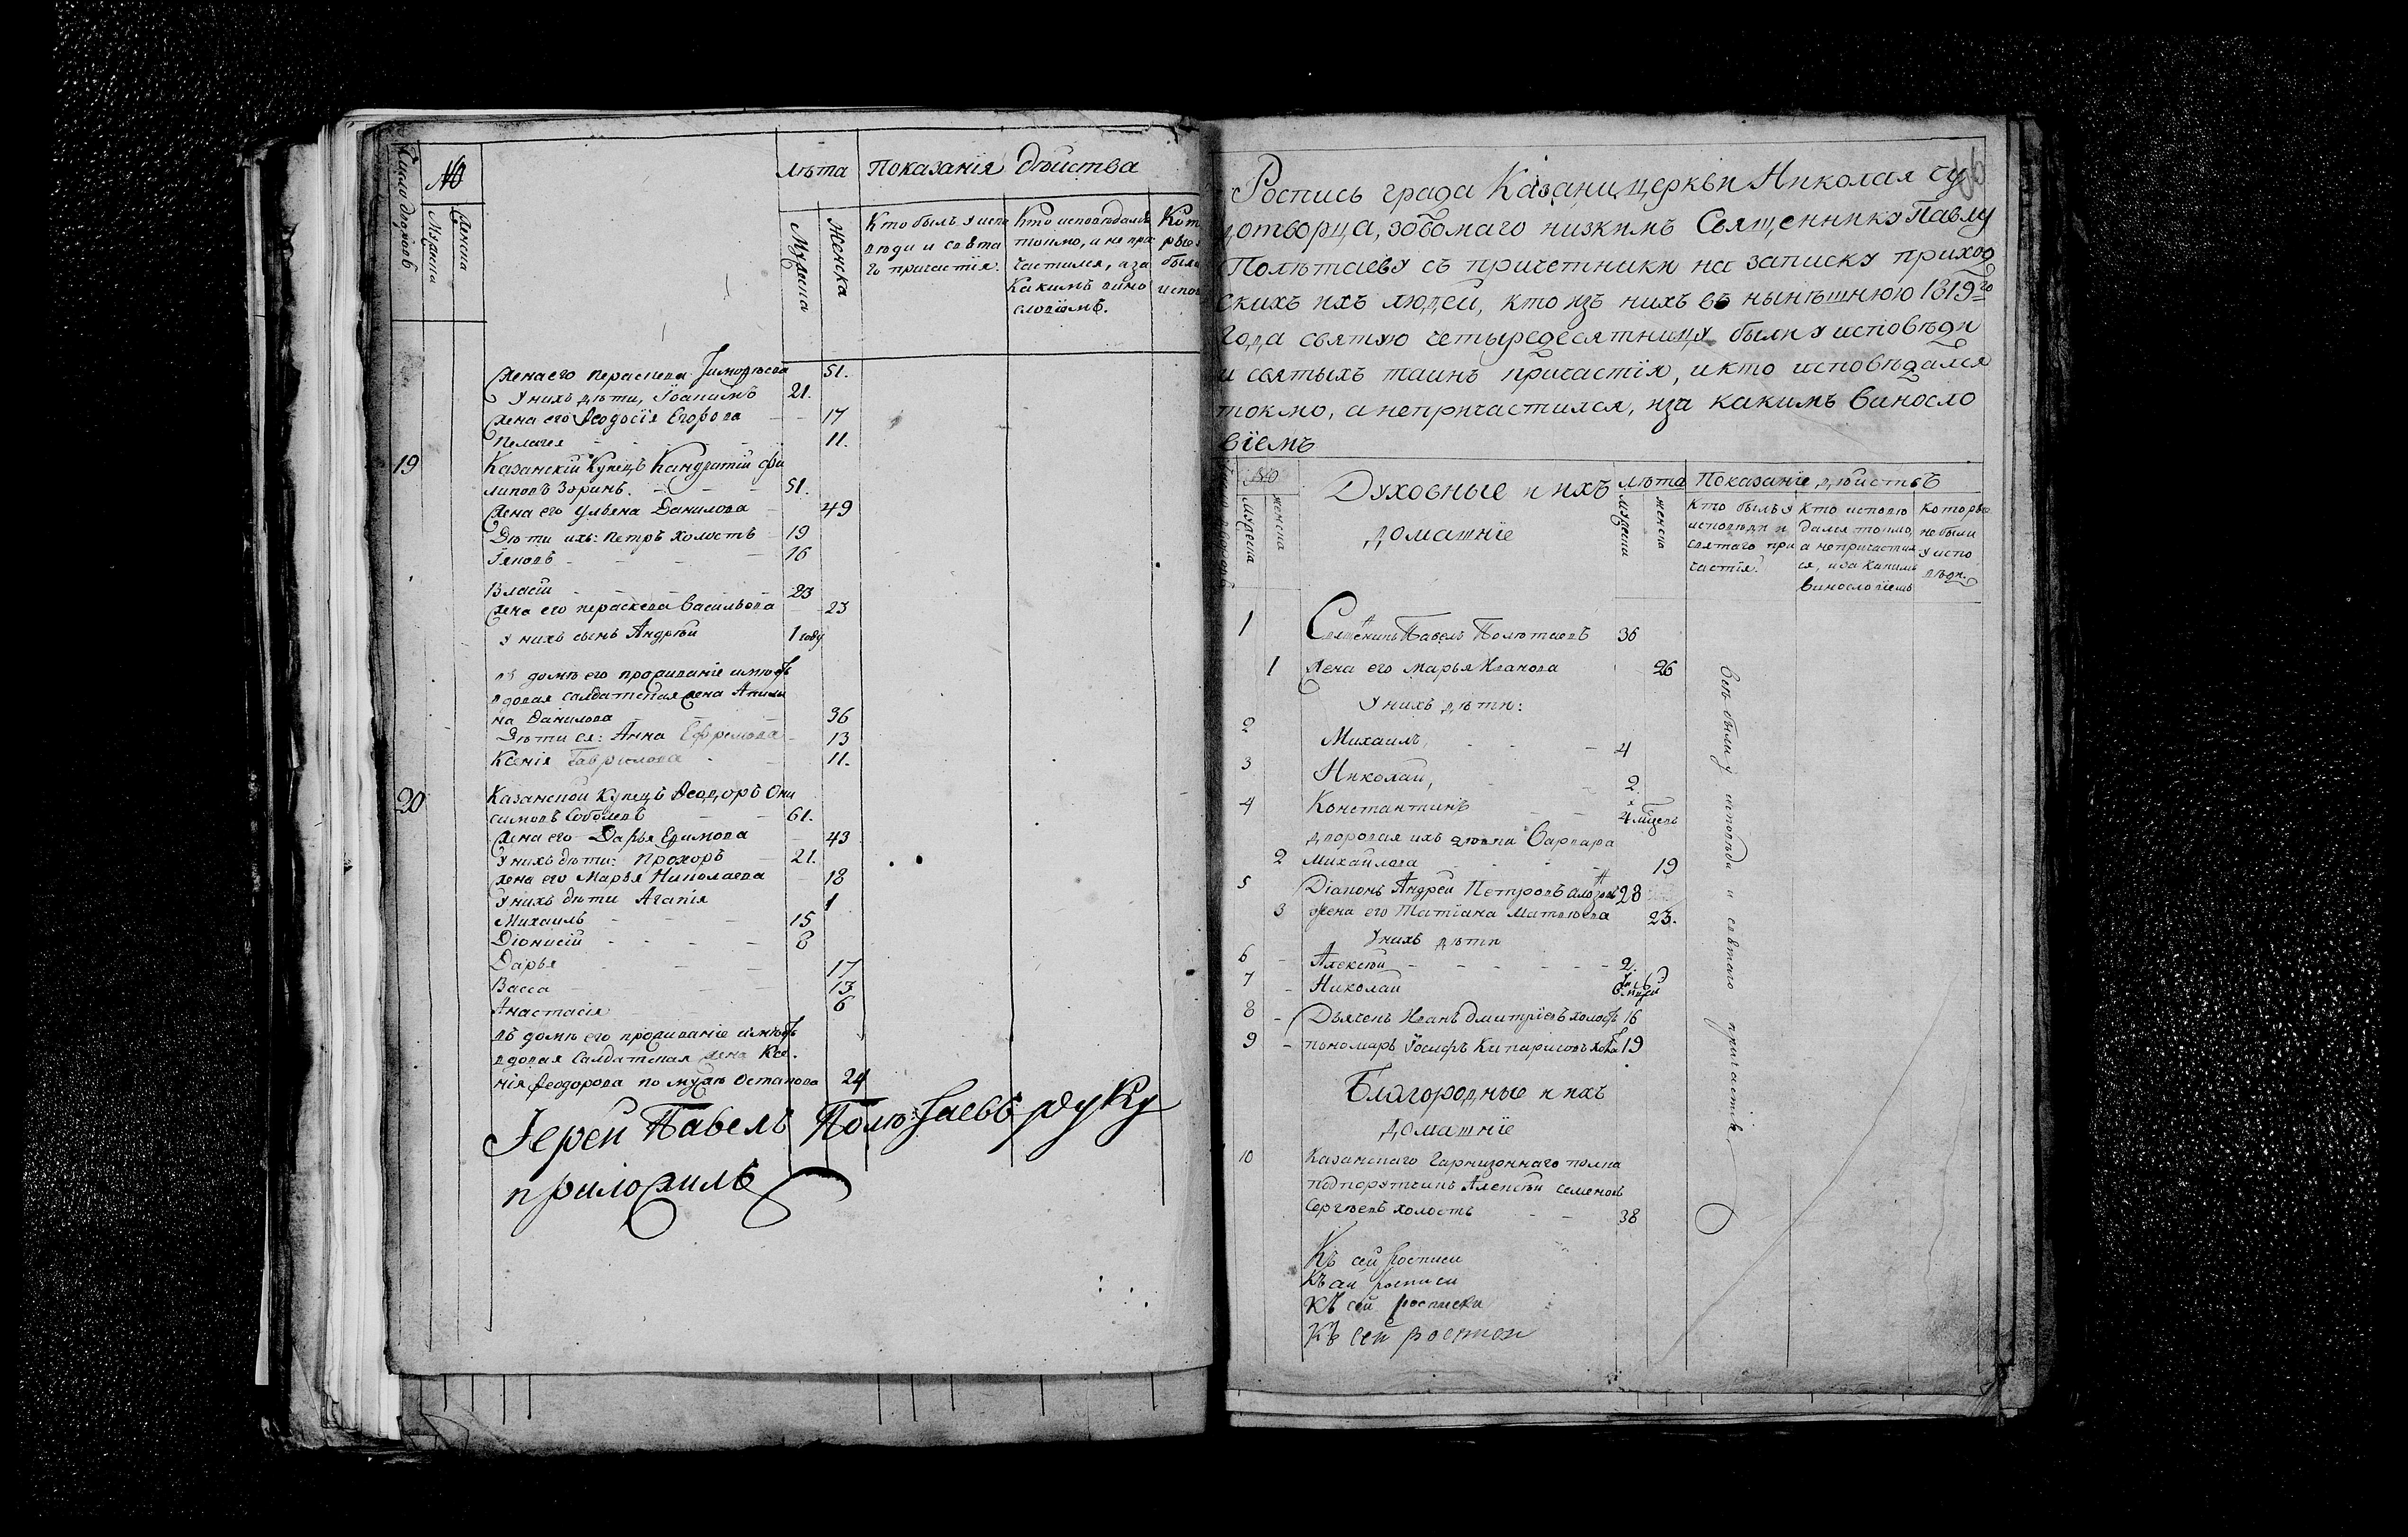 Число дворовъ
№
Мужеска
Женска
лѣта
Показанїя дѣйства
Мужеска
Женска
Кто былъ у испо
вѣди и свѧта
го причастїя.
Кто исповѣдалсѧ
токмо, и не при
частился, и за
какимъ вино
словїемъ.
Кот
рые
были
испов
Жена его Параскева Тимофѣева 51.
У нихъ дѣти, Їоакимъ 21.
Жена его Ѳеодосїя Егорова 17
Пелагея 11.
19 Казанскїй Купецъ Кандратїй Фи
липовъ Зоринъ. 51.
Жена его Ульяна Данилова 49
Дѣти ихъ: Петръ холостъ 19
Їяковъ 16
Власїй 23
Жена его Параскева Васильева 23
У нихъ сынъ Андрѣй 1 году
въ домѣ его проживанїе имѣетъ
вдовая солдатская жена Акили
на Данилова 36
Дѣти ея: Анна Ефремова 13
Ксенїя Гаврилова 11.
20 Казанской Купецъ Ѳеодоръ Они
симовъ Соболевъ 61.
Жена его Дарья Ефимова 43
У нихъ дѣти: Прохоръ 21.
Жена его Марья Николаева 18
У нихъ дѣти Агапїя 1
Михаилъ 15
Дїонисїй 8
Дарья 17
Васса 13
Анастасїя 6
въ домѣ его проживанїе имѣетъ
вдовая Салдатская жена Ксе
нїя Ѳеодорова по мужѣ Остапова 24
Їерей Павелъ Полѣтаевъ руку
приложилъ
Роспись града Казани церкви Николая чу
дотворца, зовомаго низкимъ Священнику Павлу
Полѣтаеву съ причетники на записку приход
скихъ ихъ людей, кто изъ нихъ въ нынѣшнюю 1819го
года святую четыредесятницу были у исповѣди
и святыхъ таинъ причастїя, и кто исповѣдался
токмо, а непричастился, иза какимъ виносло
вїемъ
№
мужеска
женска
Духовные и ихъ
домашнїе
лѣта
мужеска
женска
Показанїе дѣйствъ
Кто былъ у
исповѣди и
святаго при
частїя.
Кто исповѣ
дался токмо,
а непричастил
ся, иза какимъ
винословїемъ
Которые
не были
у испо
вѣди.
1 Священникъ Павелъ Полѣтаевъ 36
1 Жена его Марья Иванова 26
У нихъ дѣти:
2 Михаилъ, 4
3 Николай, 2
4 Константинъ 4 мцевъ
дворовая ихъ дѣвка Варвара
2 Михайлова 19
5 Дїаконъ Андрей Петровъ 28
3 жена его Татїана Матвѣева 23.
У нихъ дѣти
6 Алексѣй 2.
7 Николай
8 Дьячекъ Иванъ Дмитрїевъ холостъ 16
9 пономарь Їосифъ Кипарисовъ холос 19
Благородные и ихъ
домашнїе
10 Казанскаго Гарнизоннаго полка
подпорутчикъ Алексѣй Семеновъ
Сергѣевъ холостъ 38
всѣ были у исповѣди и святаго причастїя
Къ сей росписи
Къ сей росписи
Къ сей росписки
Къ сей роспи